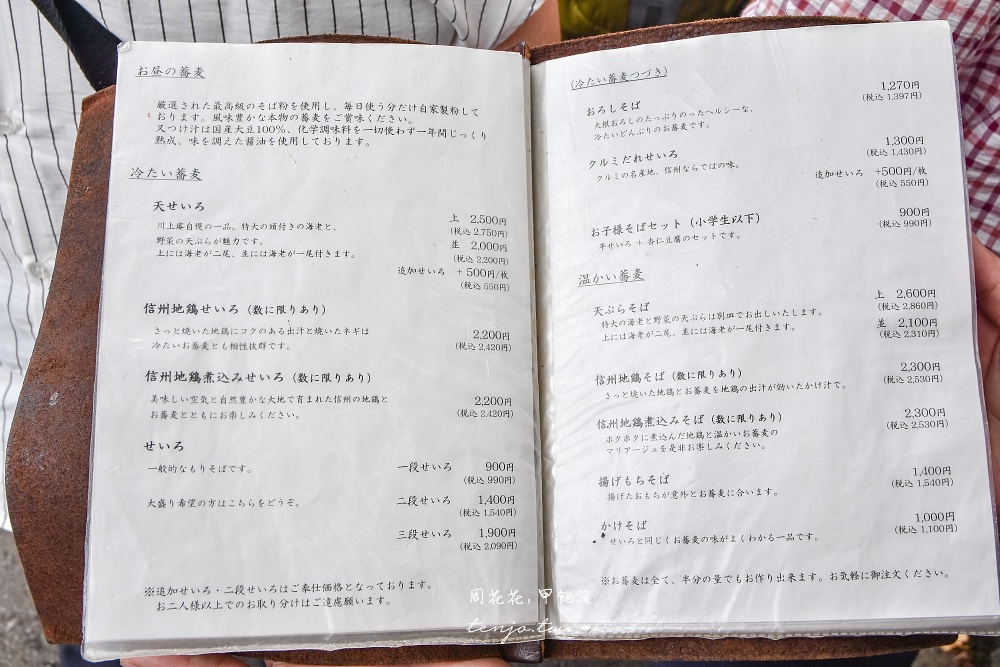 お昼の蕎麦
厳選された最高級のそば粉を使用し、毎日使う分だけ自家製粉して
おります。風味豊かな本物の蕎麦をご賞味ください。
又つけ汁は国産大豆100%、化学調味料を一切使わず一年間じっくり
熟成、味を調えた醤油を使用しております。
冷たい蕎麦
天せいろ
川上庵自慢の一品。特大の頭付きの海老と、
野菜の天ぷらが魅力です。
上には海老が二尾、並には海老が一尾付きます。
上 2,500円
(税込 2,750円)
並 2,000円
(税込 2,200円)
追加せいろ +500円/枚
(税込 550円)
信州地鶏せいろ(数に限りあり)
さっと焼いた地鶏にコクのある出汁と焼いたネギは
冷たいお蕎麦とも相性抜群です。
2,200円
(税込 2,420円)
信州地鶏煮込みせいろ(数に限りあり)
美味しい空気と自然豊かな大地で育まれた信州の地鶏と
お蕎麦とともにお楽しみください。
2,200円
(税込 2,420円)
せいろ
一般的なもりそばです。
一段せいろ 900円
(税込 990円)
大盛り希望の方はこちらをどうぞ。
二段せいろ 1,400円
(税込 1,540円)
三段せいろ 1,900円
(税込 2,090円)
※追加せいろ・二段せいろはご奉仕価格となっております。
お二人様以上でのお取り分けはご遠慮願います。
(冷たい蕎麦つづき)
おろしそば
大根おろしのたっぷりのったヘルシーな、
冷たいどんぶりのお蕎麦です。
1,270円
(税込 1,397円)
クルミだれせいろ
クルミの名産地、信州ならではの味。
1,300円
(税込 1,430円)
追加せいろ +500円/枚
(税込 550円)
お子様そばセット(小学生以下)
半せいろ + 杏仁豆腐のセットです。
900円
(税込 990円)
温かい蕎麦
天ぷらそば
特大の海老と野菜の天ぷらは別皿でお出しいたします。
上には海老が二尾、並には海老が一尾付きます。
上 2,600円
(税込 2,860円)
並 2,100円
(税込 2,310円)
信州地鶏そば(数に限りあり)
さっと焼いた地鶏とお蕎麦を地鶏の出汁が効いたかけ汁で。
2,300円
(税込 2,530円)
信州地鶏煮込みそば(数に限りあり)
ホクホクに煮込んだ地鶏と温かいお蕎麦の
マリアージュを是非お楽しみください。
2,300円
(税込 2,530円)
揚げもちそば
揚げたおもちが意外とお蕎麦に合います。
1,400円
(税込 1,540円)
かけそば
せいろと同じくお蕎麦の味がよくわかる一品です。
1,000円
(税込 1,100円)
※お蕎麦は全て、半分の量でもお作り出来ます。お気軽に御注文ください。
周花花,甲飽没
tenjo.tw